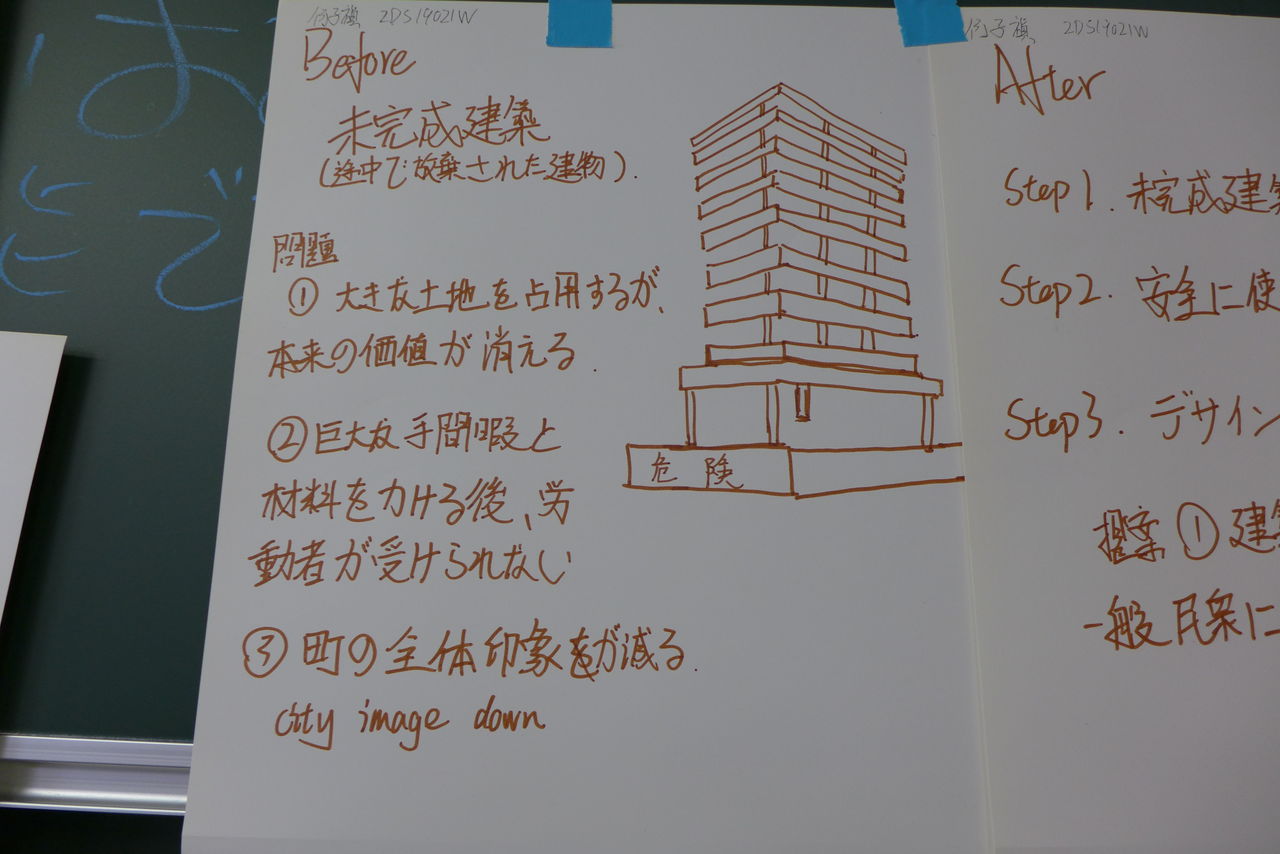 2DS19021W
Before
未完成建築
(途中で放棄された建物).
問題
① 大きな土地を占用するが、
本来の価値が消える.
② 巨大な手間暇と
材料をかける後、労
動者が受けられない
③ 町の全体印象が減る.
city image down
危険
2DS19021W
After
Step1. 未完成建築
Step2. 安全に使
Step3. デザイン
① 建築
一般民衆に